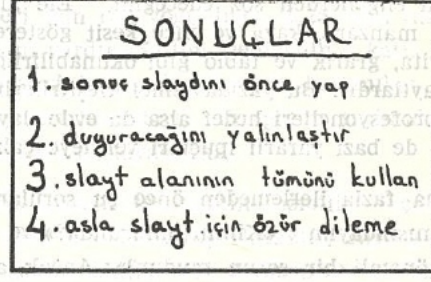 SONUÇLAR
1. sonuç slaydını önce yap
2. duyuracağını yalınlaştır
3. slayt alanının tümünü kullan
4. asla slayt için özür dileme